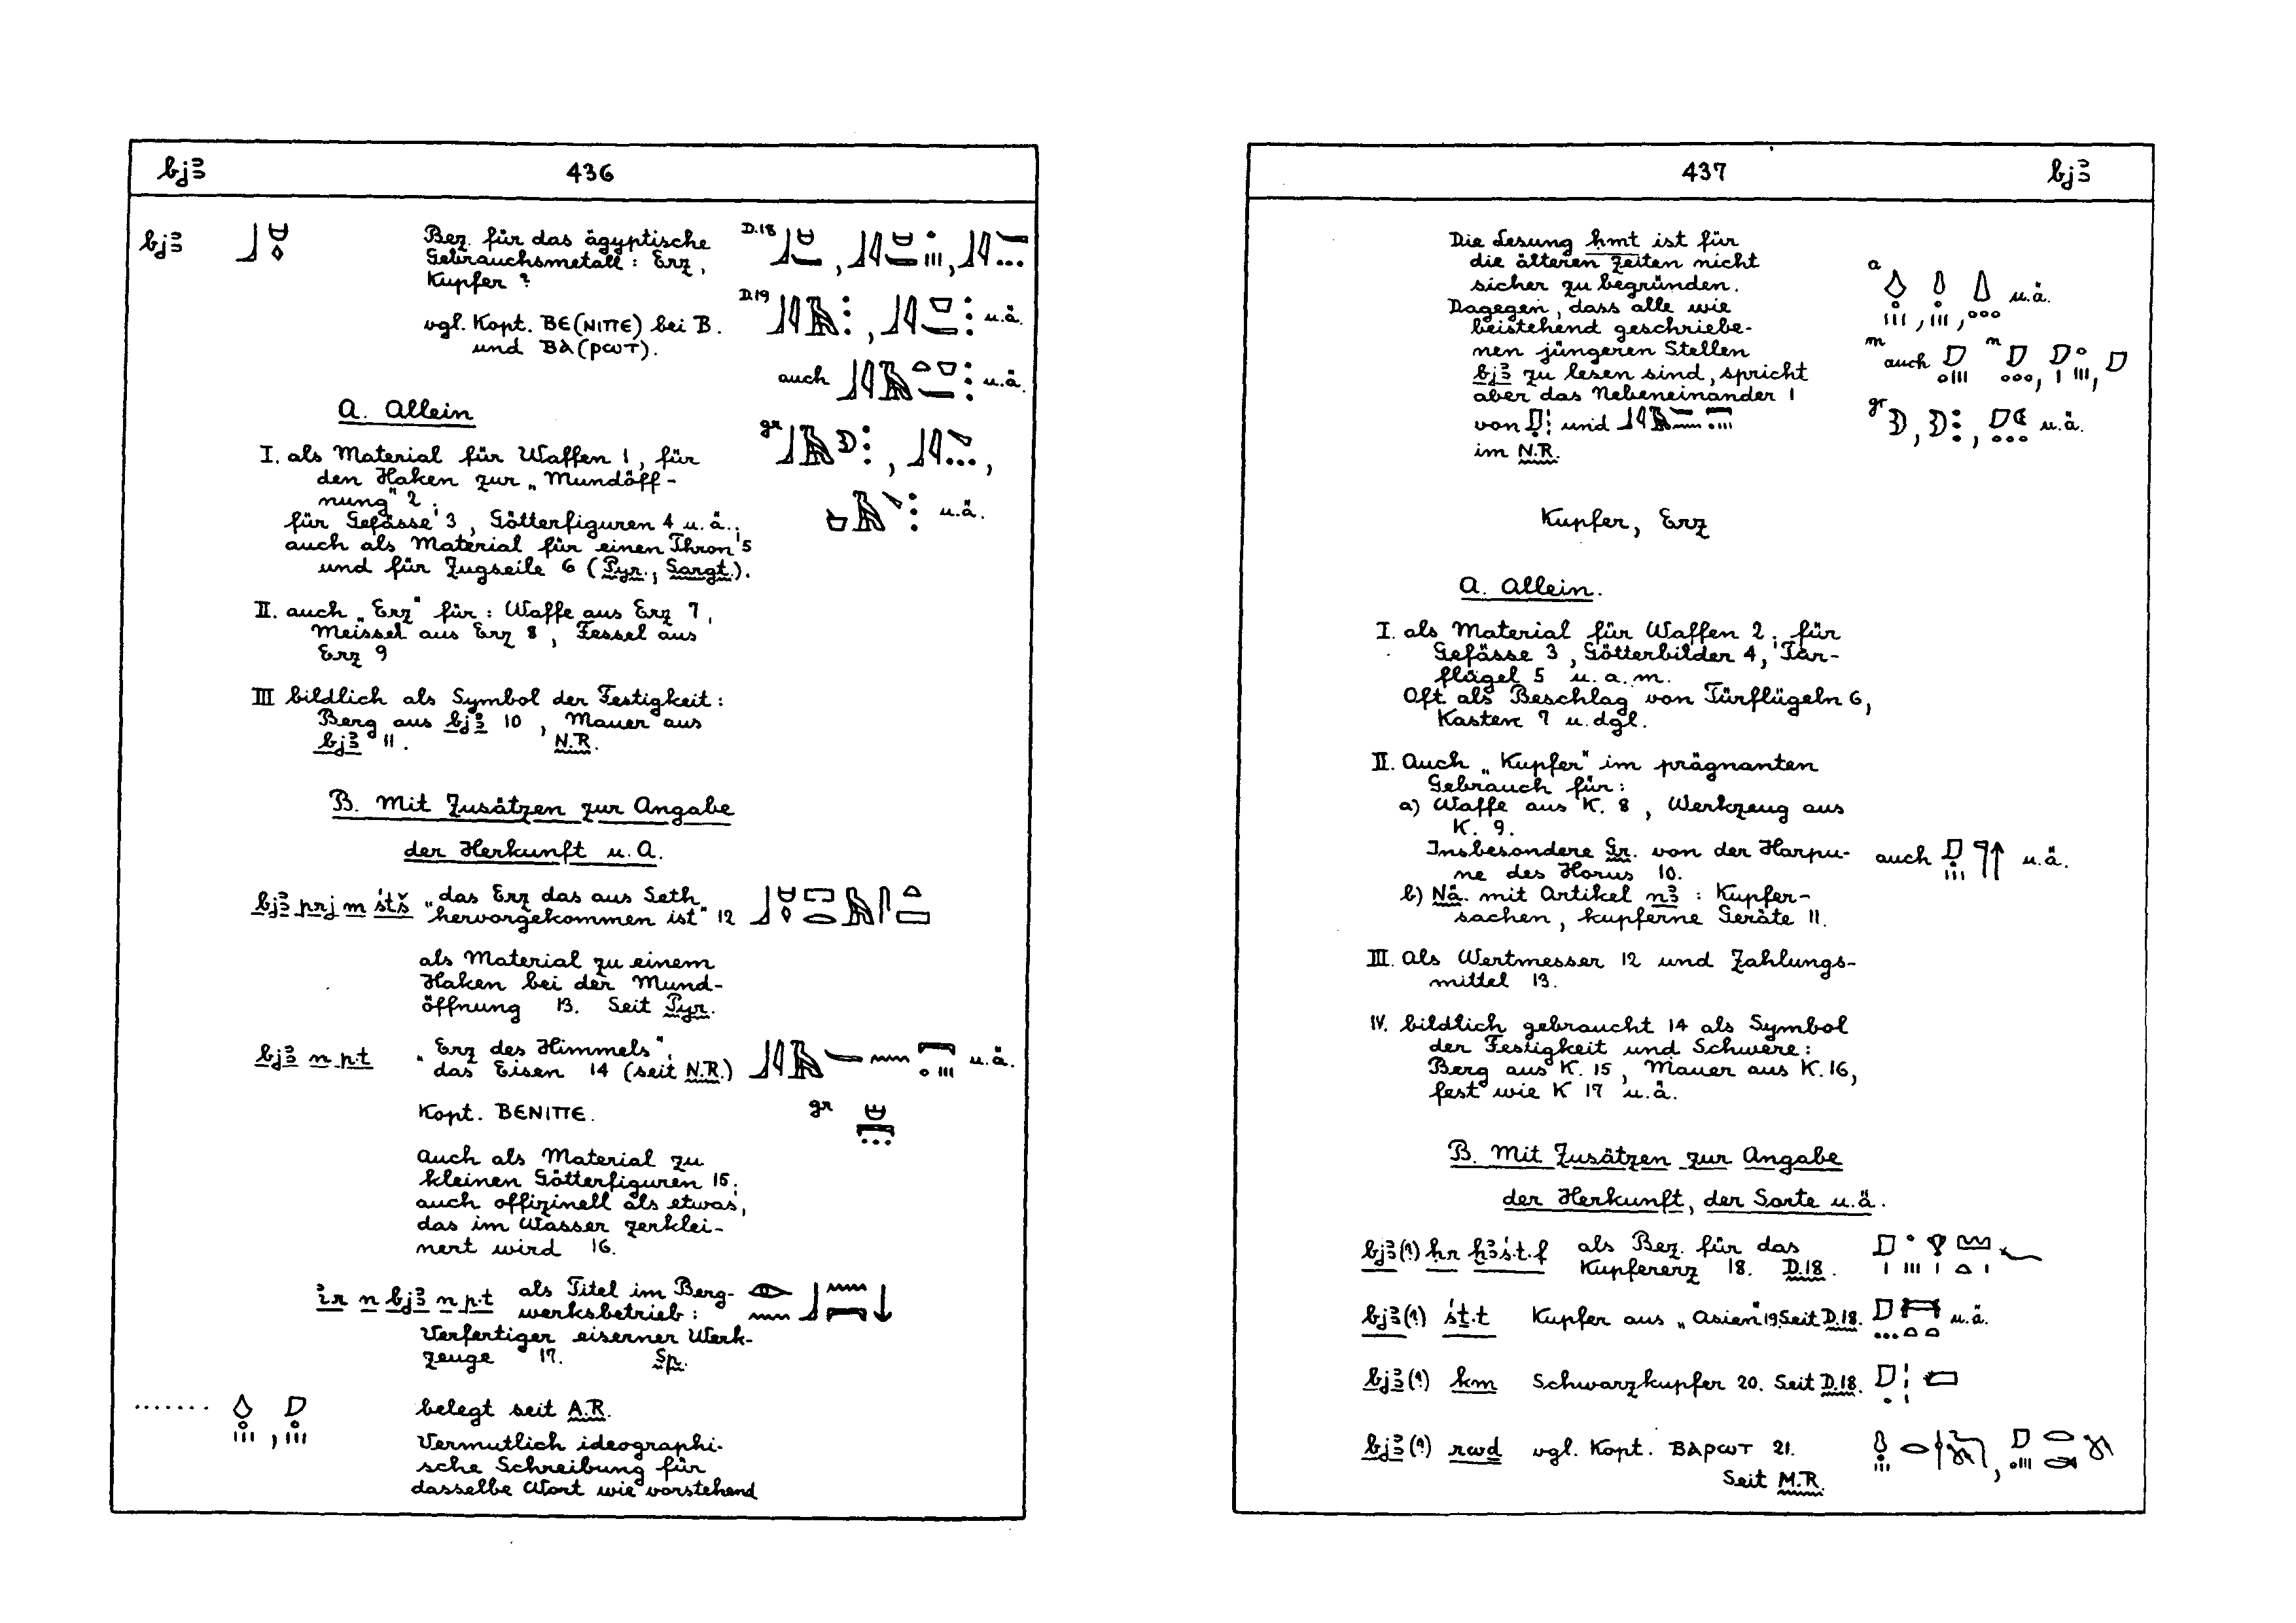 bjꜣ 436
bjꜣ Bez. für das ägyptische D.18
Gebrauchsmetall: Erz,
Kupfer?
D.19 u.ä.
vgl. Kopt. ⲂⲈ(ⲚⲒⲠⲈ) bei B.
und ⲂⲀ(ⲢⲰⲦ).
auch u.ä.
A. Allein
gr
I. als Material für Waffen 1, für
den Haken zur „Mundöff-
nung" 2;
u.ä.
für Gefässe 3, Götterfiguren 4 u.ä.;
auch als Material für einen Thron 5
und für Zugseile 6 (Pyr., Sargt.).
II. auch „Erz" für: Waffe aus Erz 7,
Meissel aus Erz 8, Fessel aus
Erz 9
III bildlich als Symbol der Festigkeit:
Berg aus bjꜣ 10, Mauer aus
bjꜣ 11. N.R.
B. Mit Zusätzen zur Angabe
der Herkunft u.A.
bjꜣ prj m śtš „das Erz das aus Seth
hervorgekommen ist" 12
als Material zu einem
Haken bei der Mund-
öffnung 13. Seit Pyr.
bjꜣ n p.t „Erz des Himmels",
das Eisen 14 (seit N.R.) u.ä.
Kopt. ⲂⲈⲚⲒⲠⲈ. gr
Auch als Material zu
kleinen Götterfiguren 15;
auch offizinell als etwas,
das im Wasser zerklei-
nert wird 16.
ir n bjꜣ n p.t als Titel im Berg-
werksbetrieb:
Verfertiger eiserner Werk-
zeuge 17. Sp.
....... , belegt seit A.R.
Vermutlich ideographi-
sche Schreibung für
dasselbe Wort wie vorstehend
437 bjꜣ
Die Lesung ḥmt ist für
die älteren Zeiten nicht
sicher zu begründen. a u.ä.
Dagegen, dass alle wie
beistehend geschriebe-
nen jüngeren Stellen m auch n
bjꜣ zu lesen sind, spricht
aber das Nebeneinander 1
von und gr u.ä.
im N.R.
Kupfer, Erz
A. Allein.
I. als Material für Waffen 2; für
Gefässe 3, Götterbilder 4, Tür-
flügel 5 u.a.m.
Oft als Beschlag von Türflügeln 6,
Kasten 7 u.dgl.
II. Auch „Kupfer" im prägnanten
Gebrauch für:
a) Waffe aus K. 8, Werkzeug aus
K. 9.
Insbesondere Gr. von der Harpu- auch u.ä.
ne des Horus 10.
b) Nä. mit Artikel nꜣ: Kupfer-
sachen, kupferne Geräte 11.
III. Als Wertmesser 12 und Zahlungs-
mittel 13.
IV. bildlich gebraucht 14 als Symbol
der Festigkeit und Schwere:
Berg aus K. 15, Mauer aus K. 16,
fest wie K 17 u.ä.
B. Mit Zusätzen zur Angabe
der Herkunft, der Sorte u.ä.
bjꜣ(?) ḥr ḫꜣś.t.f als Bez. für das
Kupfererz 18. D.18.
bjꜣ(?) śṯ.t Kupfer aus „Asien" 19 Seit D.18. u.ä.
bjꜣ(?) km Schwarzkupfer 20. Seit D.18.
bjꜣ(?) rwd vgl. Kopt. ⲂⲀⲢⲰⲦ 21.
Seit M.R.